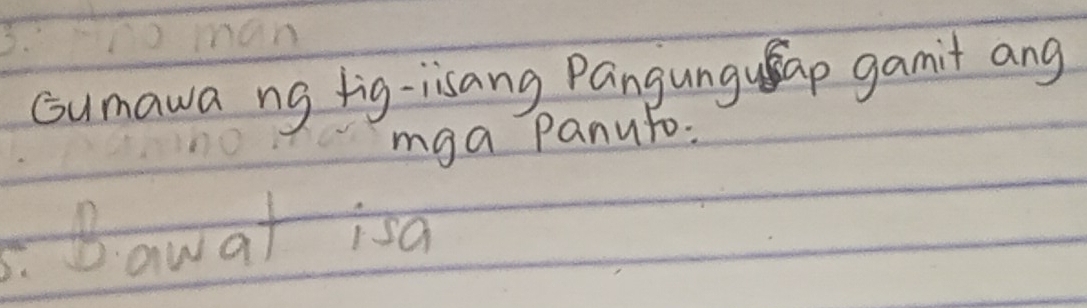 3. ano man
Gumawa ng tig-iisang Pangungusap gamit ang
mga Panuto:
5. Bawat isa